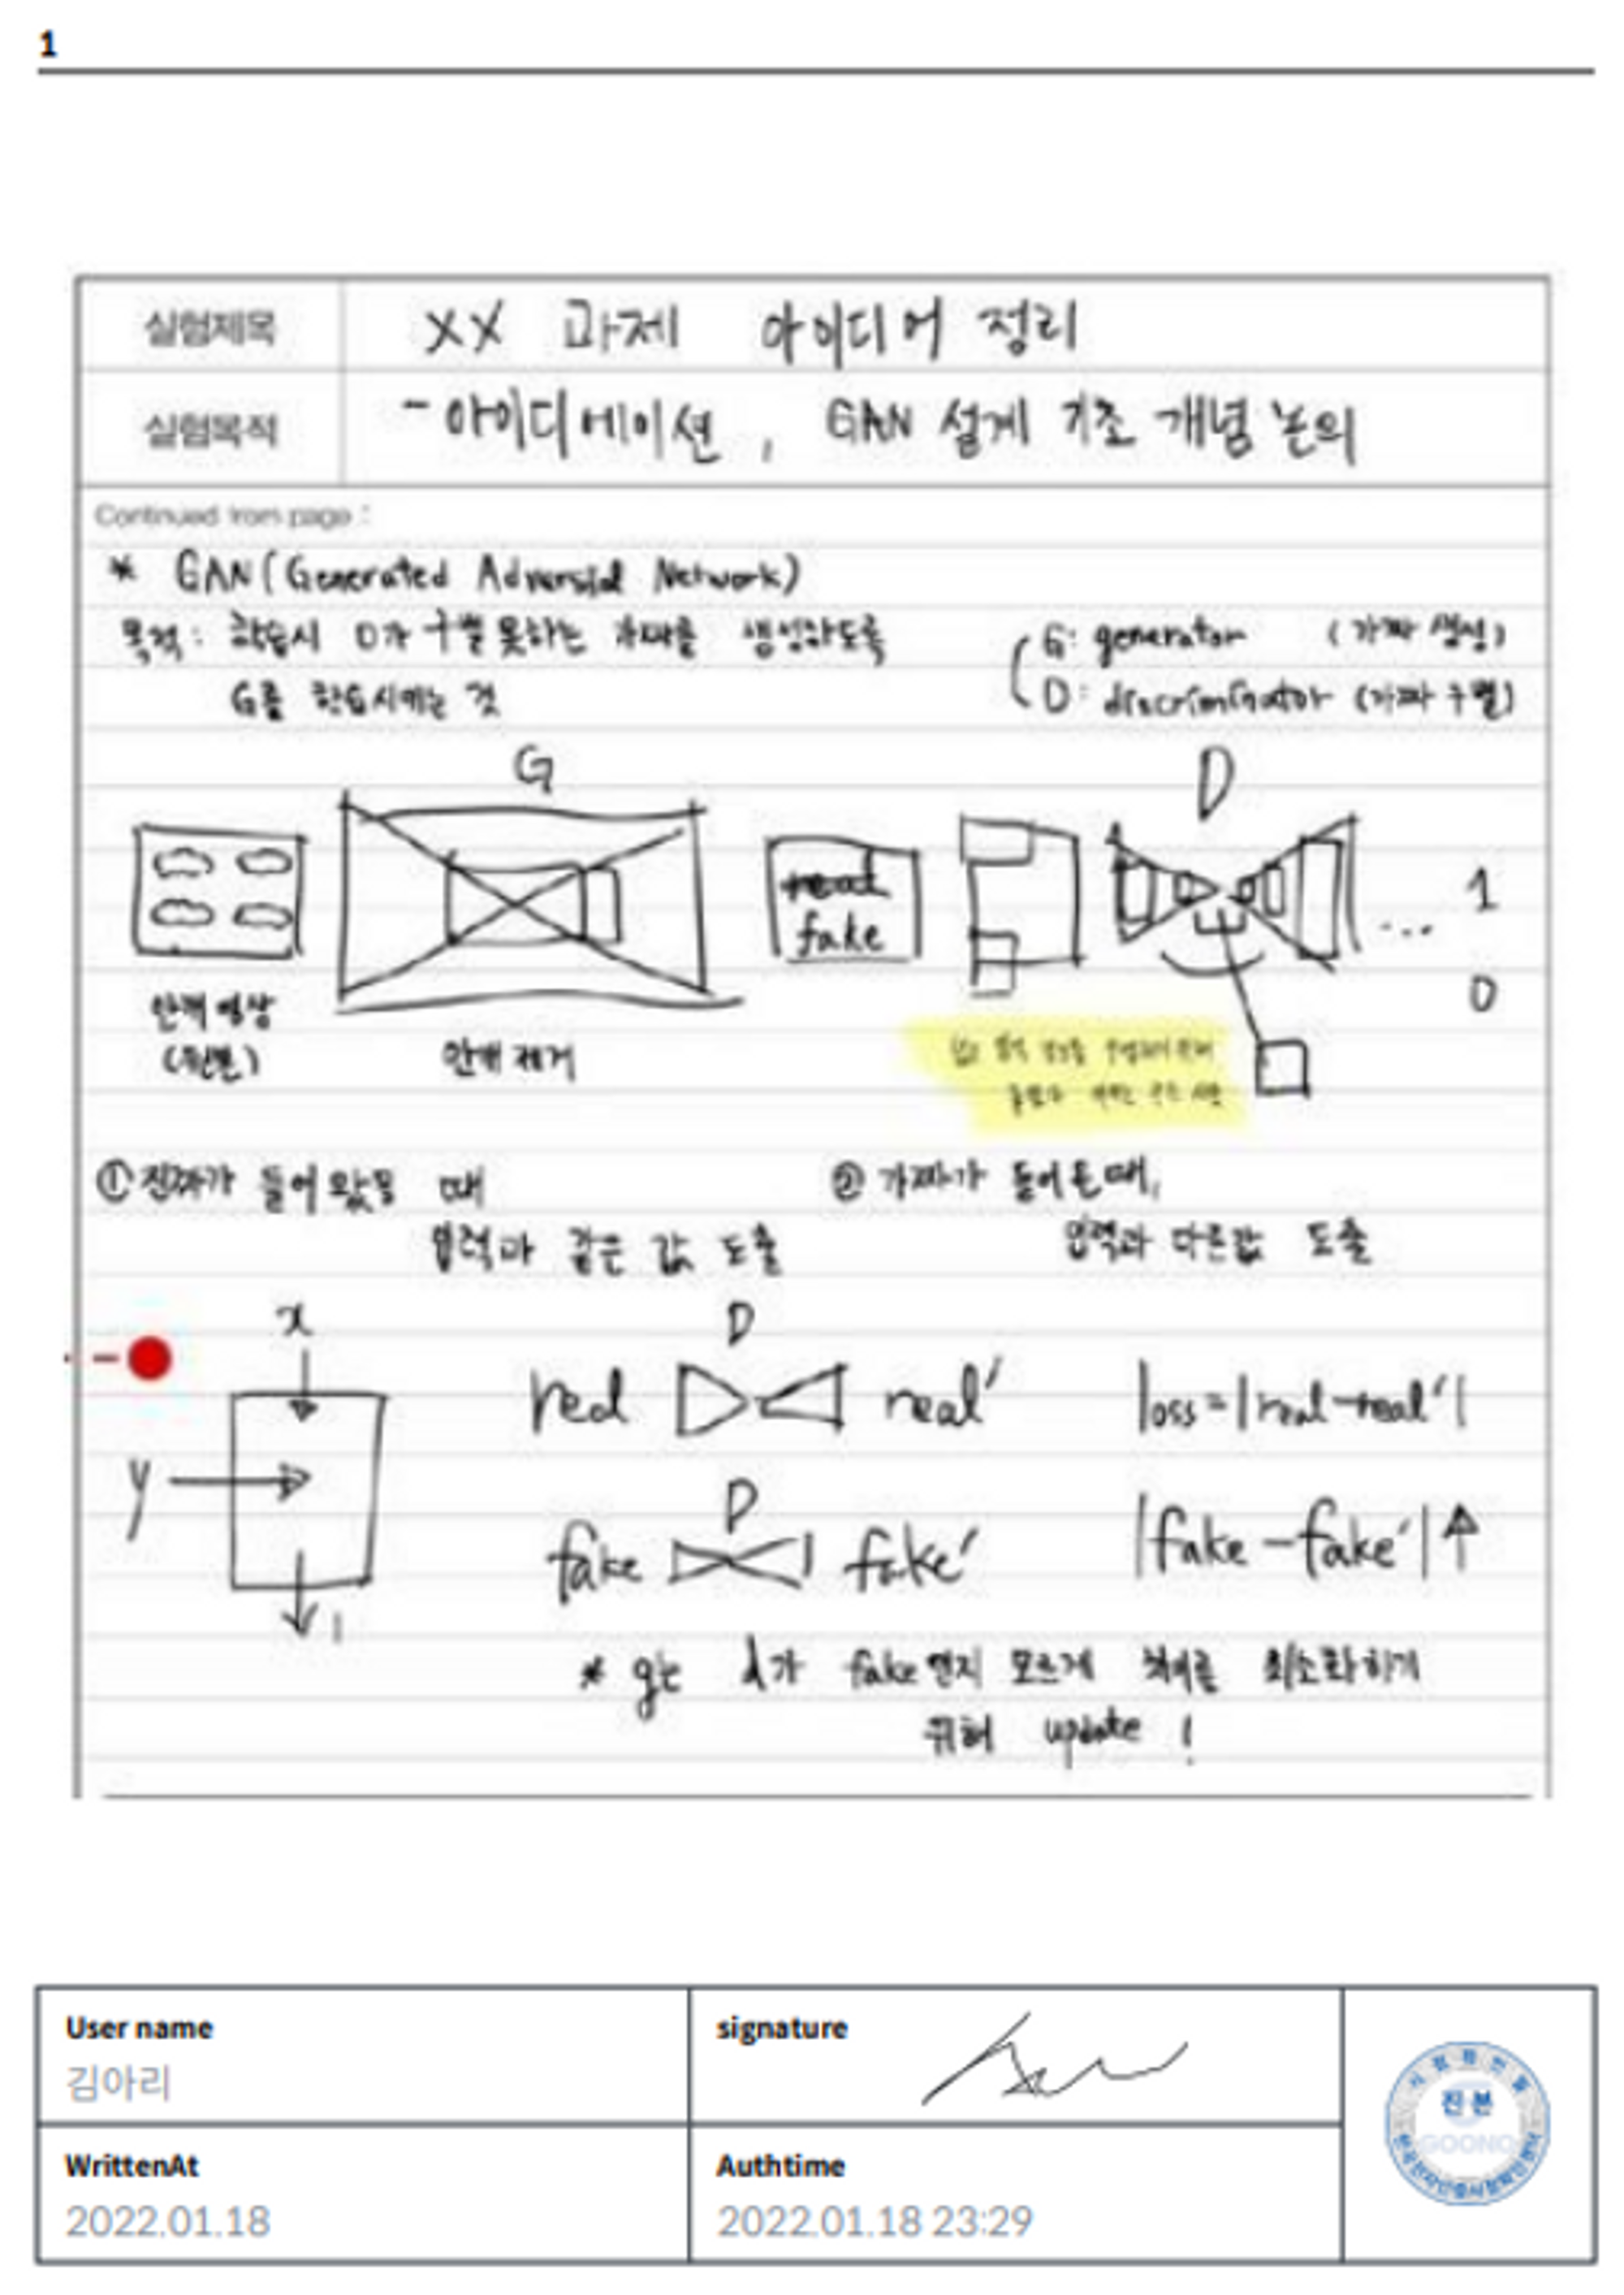 1
실험제목 XX 과제 아이디어 정리
실험목적 - 아이디에이션, GAN 설계 기초 개념 논의
Continued from page :
* GAN (Generated Adversial Network)
목적: 학습시 D가 구별 못하는 가짜를 생성하도록
G를 학습시키는 것
G: generator (가짜 생성)
D: discriminator (가짜 구별)
G
D
real
fake
... 1
0
안개 영상
(원본)
안개 제거
① 진짜가 들어왔을 때
입력과 같은 값 도출
② 가짜가 들어온때,
입력과 다른값 도출
x
y
1
D
real real′ loss=|real-real′|
D
fake fake′ |fake-fake′|↑
* g는 d가 fake인지 모르게 최소화하기
위해 update !
User name
김아리
signature
WrittenAt
2022.01.18
Authtime
2022.01.18 23:29
진본
GOONO